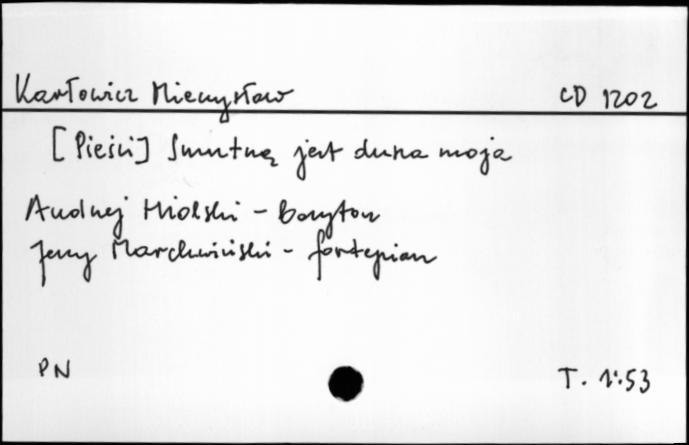 Karłowicz Mieczysław CD 1202
[Pieśni] Smutną jest dusza moja
Andrzej Hiolski - baryton
Jerzy Marchwiński - fortepian
PN T. 1:53